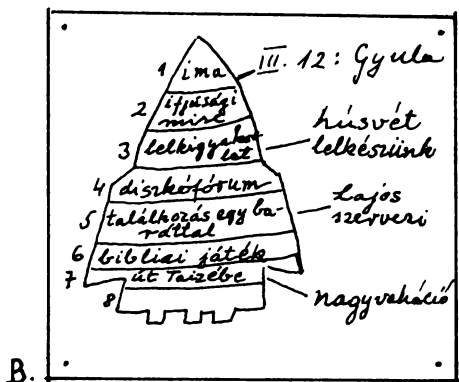 1 ima
III. 12: Gyula
2 ifjúsági
mise
3 lelkigyakor-
lat
húsvét
lelkészünk
4 diszkófórum
5 találkozás egy ba-
ráttal
Lajos
szervezi
6 bibliai játék
7 út Taizébe
8
nagyvakáció
B.